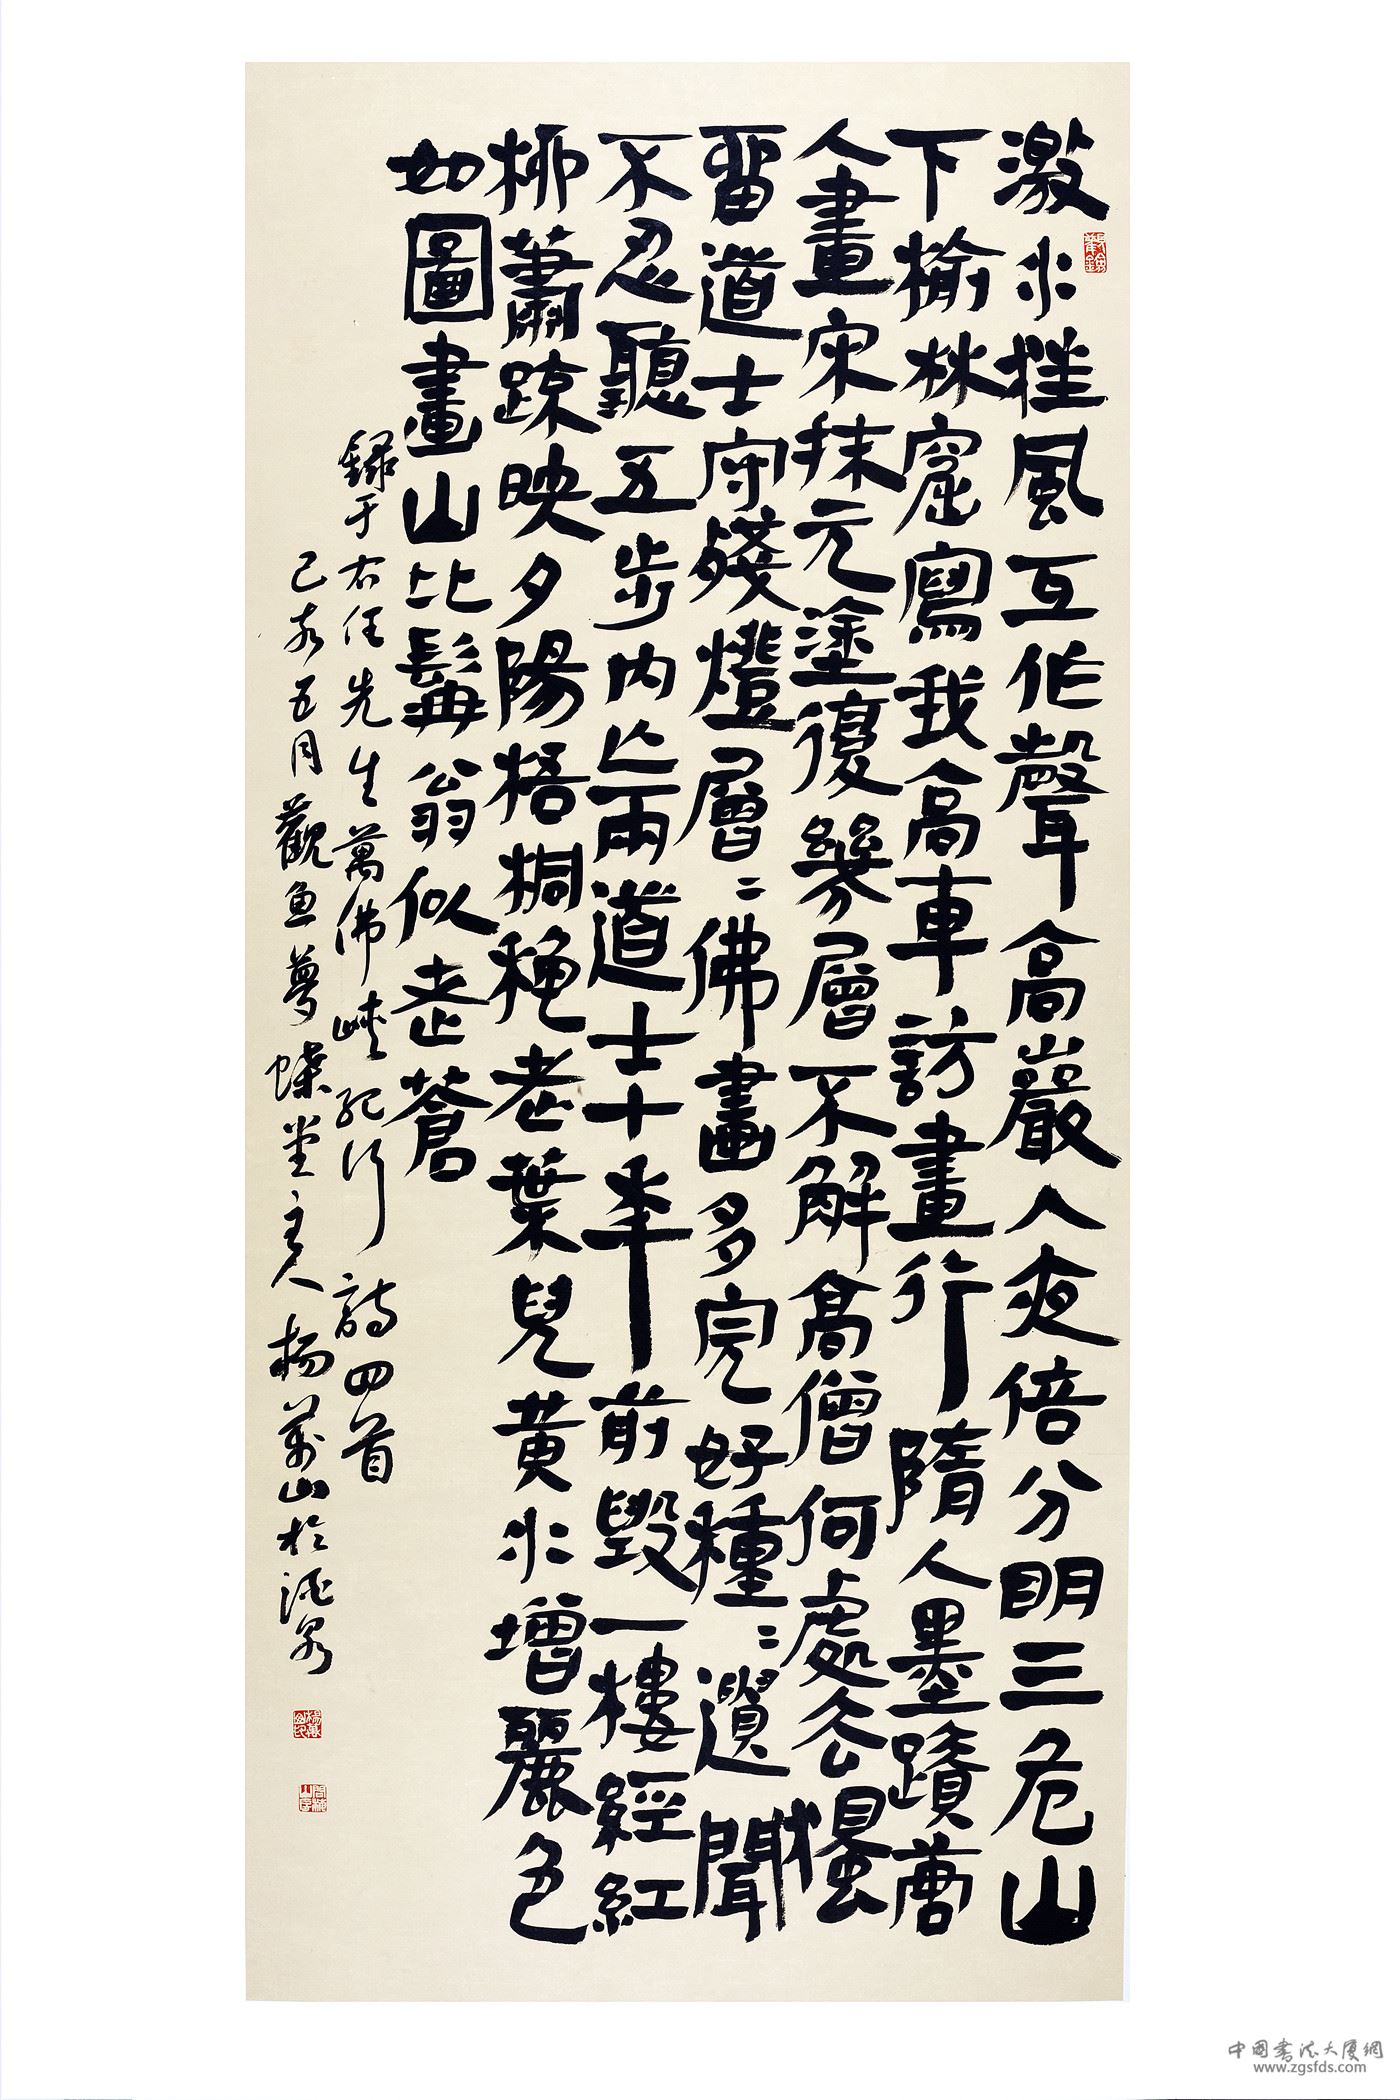 激水狂風互作聲高巖入夜倍分明三危山
下榆林窟寫我高車訪畫行隋人墨蹟唐
人畫宋抹元塗復幾層不解高僧何處去獨
留道士守殘燈層〻佛畫多完好種〻遺聞
不忍聽五步内亡兩道士十年前毀一樓經紅
柳蕭疎映夕陽梧桐秋老葉兒黃水增麗色
如圖畫山比髯翁似老蒼
錄于右任先生萬佛峽紀行詩四首
己亥五月觀魚夢蝶堂主人楊萬山於酒泉
中國書法大厦網
www.zgsfds.com